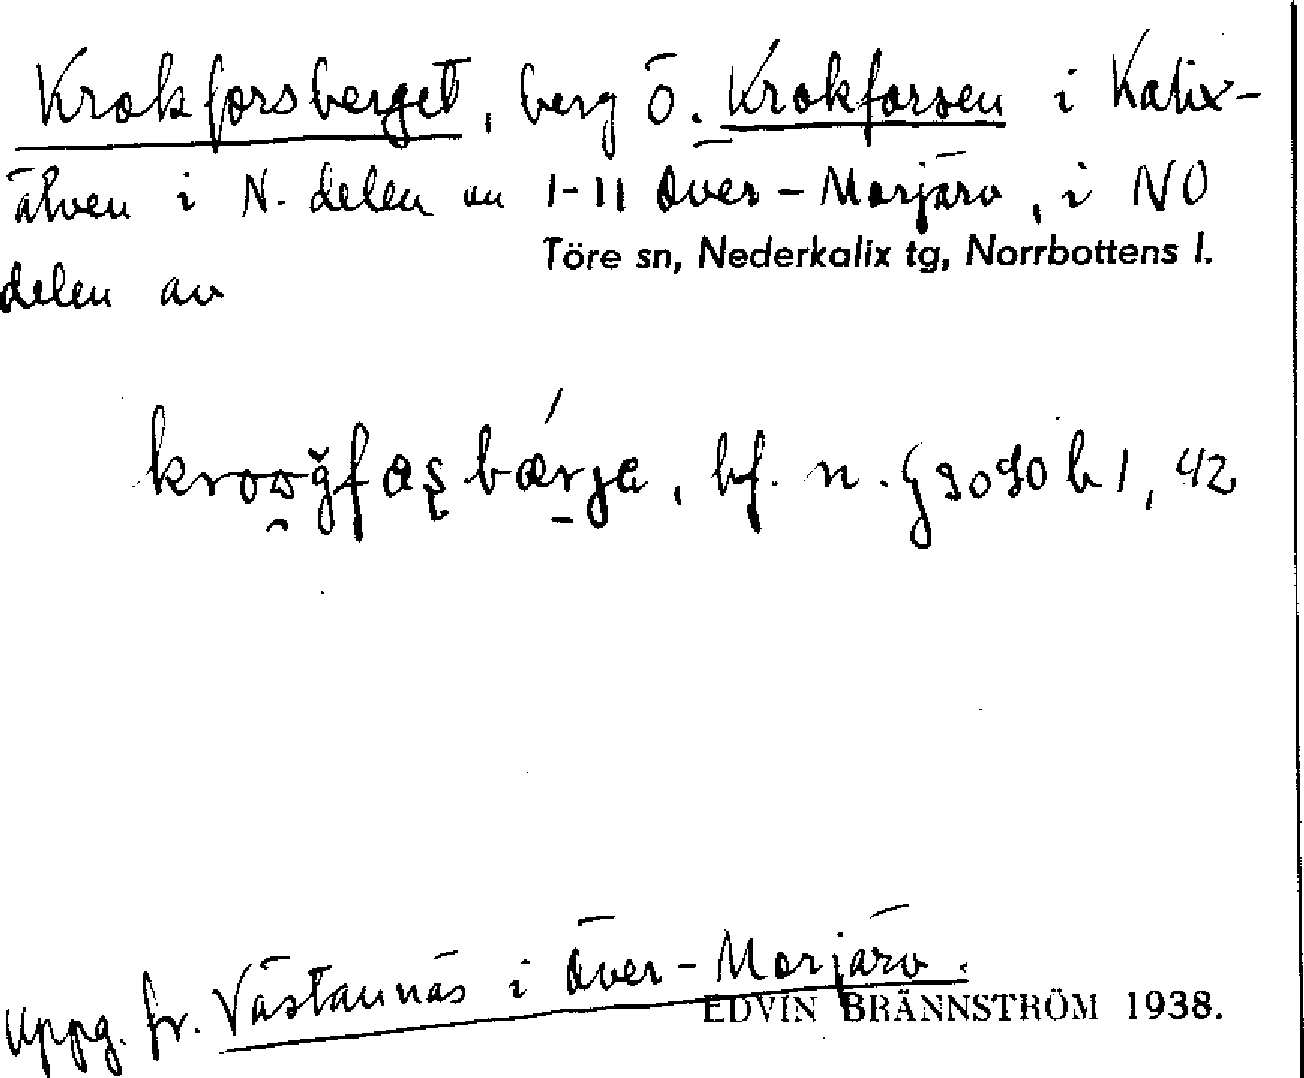 Krokforsberget, berg ö. Krokforsen i Kalix-
älven i N. delen av 1-11 Över-Morjärv, i NO
Töre sn, Nederkalix tg, Norrbottens l.
delen av
bf. n.
42
Uppg. fr. Västannäs i Över-Morjärv.
EDVIN BRÄNNSTRÖM 1938.